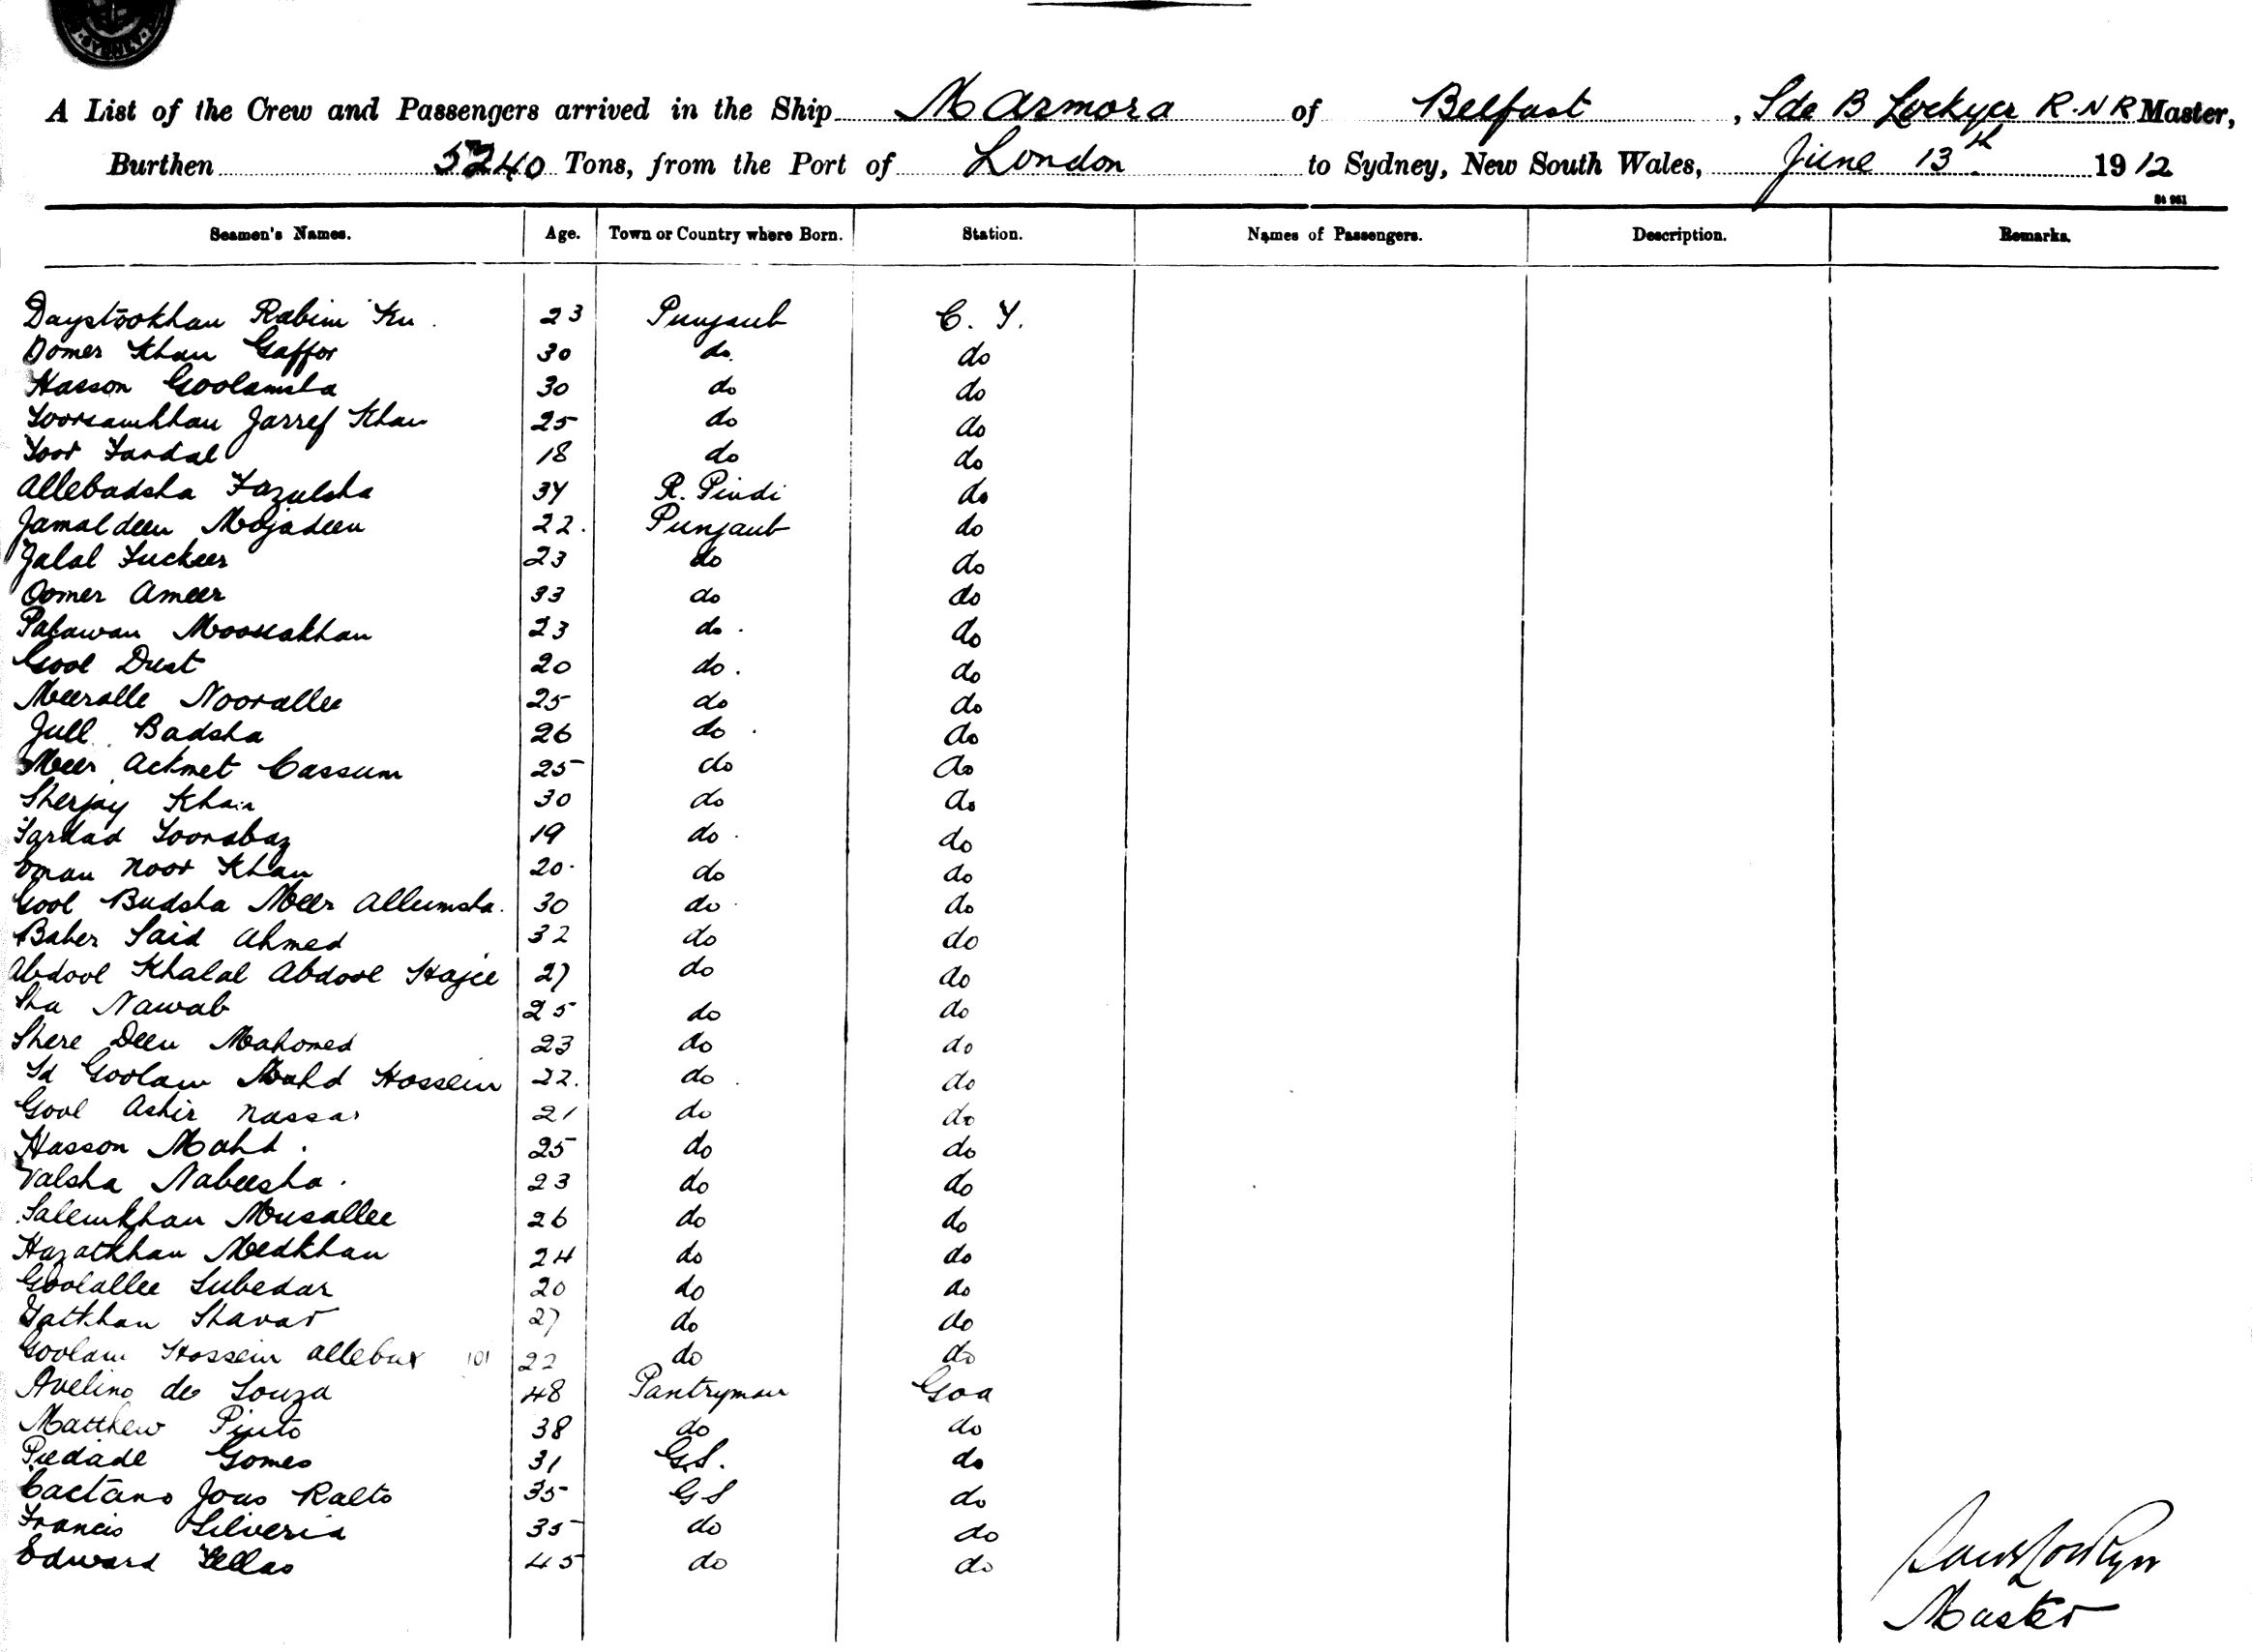 SYDNEY
A List of the Crew and Passengers arrived in the Ship Marmora of Belfast, Sde B Lockyer R.N.R Master,
Burthen 5240 Tons, from the Port of London to Sydney, New South Wales, June 13th 1912
St 961
Seamen's Names. Age. Town or Country where Born. Station. Names of Passengers. Description. Remarks.
Daystookhan Rabim Kn. 23 Punjaub C. Y.
Oomer Khan Gaffor 30 do. do
Hasson Goolamsha 30 do do
Toorsamkhan Jarref Khan 25 do do
Noor Fardal 18 do do
Allebadsha Fazulsha 34 R. Pindi do
Jamaldeen Mojadeen 22. Punjaub do
Jalal Fuckeer 23 do do
Oomer Ameer 33 do do
Palawan Moosakhan 23 do. do
Gool Dust 20 do. do
Meeralle Noorallee 25 do do
Jull Badsha 26 do. do
Meer Achmet Cassum 25 do do
Sherjay Khan 30 do do
Sardad Toorabaz 19 do. do
Eman Noor Khan 20. do do
Gool Budsha Meer Allumsha. 30 do do
Baber Said Ahmed 32 do do
Abdool Khalal Abdool Hajee 27 do do
Sha Nawab 25 do do
Shere Deen Mahomed 23 do do
Sd Goolam Mahd Hossein 22. do do
Gool Ashir Nassar 21 do do
Hasson Mahd. 25 do do
Valsha Nabeesha. 23 do do
Salemkhan Musallee 26 do do
Hazatkhan Medkhan 24 do do
Goolallee Subedar 20 do do
Yatkhan Shavar 27 do do
Goolam Hossein Allebux 101 22 do do
Avelino de Souza 48 Pantryman Goa
Matthew Pinto 38 do do
Piedade Gomes 31 G.S. do
Caetano Joao Ralto 35 G S do
Francis Silveria 35 do do
Edward Tellas 45 do do
Master